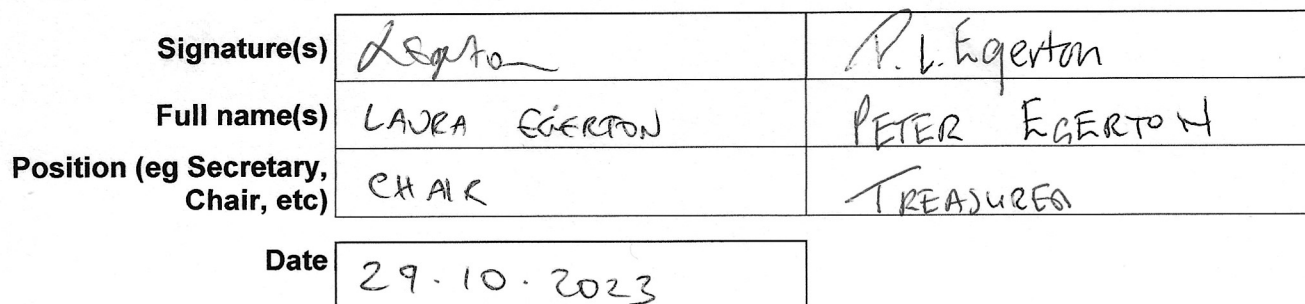 Signature(s) LEgerton P. L. Egerton
Full name(s) LAURA EGERTON PETER EGERTON
Position (eg Secretary,
Chair, etc) CHAIR TREASURER
Date 29.10.2023